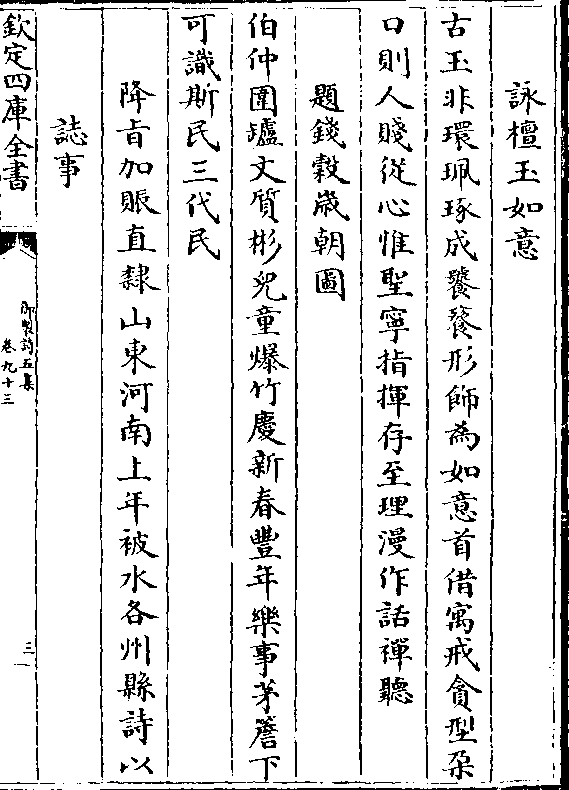 詠檀玉如意
古玉非環珮琢成饕餮形師為如意首借寓戒貪型朶
口則人賤從心惟聖寧指揮存至理漫作話禪聽
題錢穀歲朝圖
伯仲圍罏文質彬兒童爆竹慶新春豐年樂事茅簷下
可識斯民三代民
降旨加賑直隸山東河南上年被水各州縣詩以
誌事
欽定四庫全書
御製詩五集
卷九十三
三